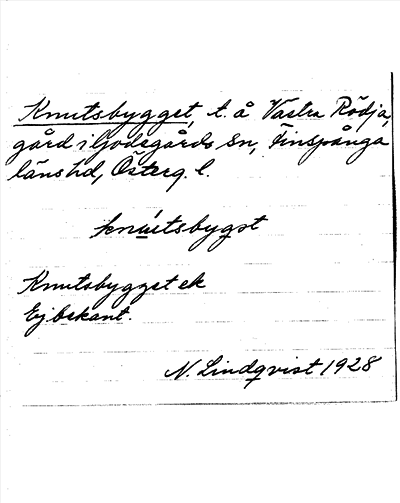 Knutsbygget, t. å Västra Rödja,
gård i Godegårds sn, Finspånga
läns hd, Österg. l.
knùtsbygət
Knutsbygget ek
Ej bekant.
N. Lindqvist 1928